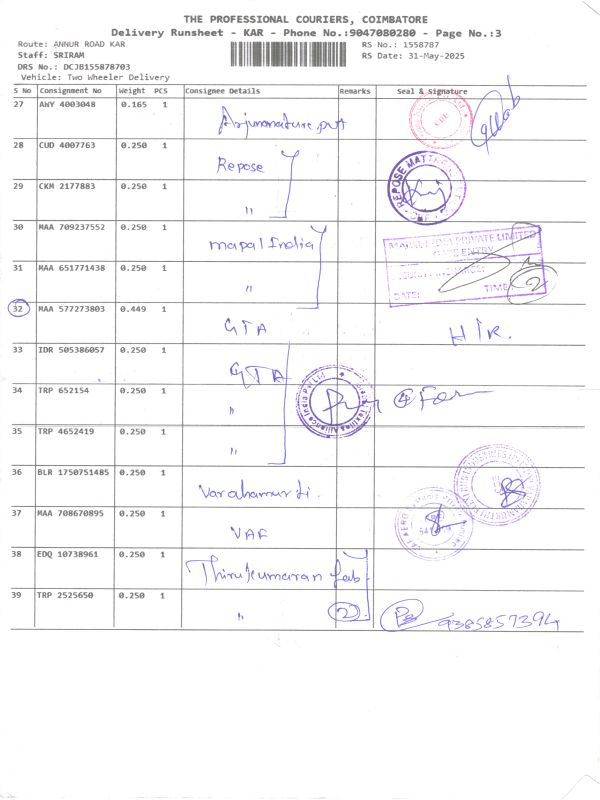 THE PROFESSIONAL COURIERS, COIMBATORE
Delivery Runsheet - KAR - Phone No.:9047080280 - Page No.:3
Route: ANNUR ROAD KAR
RS No.: 1558787
Staff: SRIRAM
RS Date: 31-May-2025
DRS No.: DCJB155878703
Vehicle: Two Wheeler Delivery
S No Consignment No Weight PCS Consignee Details Remarks Seal & Signature
27 AWY 4003048 0.165 1
28 CUD 4007763 0.250 1 Repose
REPOSE
29 CKM 2177883 0.250 1 "
30 MAA 709237552 0.250 1 mapal India
PRIVATE LIMITED
ENTRY
31 MAA 651771438 0.250 1 "
DATE: TIME: 2
32 MAA 577273803 0.449 1 GTA
33 IDR 505386057 0.250 1 GTA
34 TRP 652154 0.250 1 "
Textiles Alliance India
④ For
35 TRP 4652419 0.250 1 "
36 BLR 1750751485 0.250 1
37 MAA 708670895 0.250 1 VAF
38 EDQ 10738961 0.250 1 Thirukumaran fab
39 TRP 2525650 0.250 1 " 2 9385857394